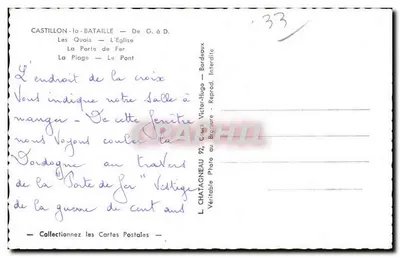 33
CASTILLON-la-BATAILLE — De G. à D.
Les Quais — L'Eglise
La Porte de Fer
La Plage — Le Pont
L'endroit de la croix
Vous indique notre salle à
manger - De cette fenêtre
nous voyons couler la
Dordogne au travers
de la "Porte de fer" Vestige
de la guerre de cent ans
L. CHATAGNEAU 92, Cours Victor-Hugo — Bordeaux
Véritable Photo au Bromure - Reprod. Interdite
— Collectionnez les Cartes Postales —